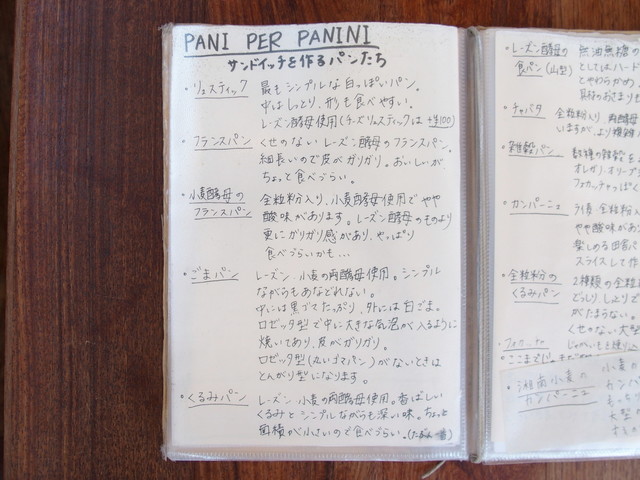 PANI PER PANINI
サンドイッチを作るパンたち
・リュスティック 最もシンプルな白っぽいパン。
中はしっとり、形も食べやすい。
レーズン酵母使用(チーズリュスティックは+¥100)
・フランスパン くせのないレーズン酵母のフランスパン。
細長いので皮がガリガリ。おいしいが
ちょっと食べづらい。
・小麦酵母の 全粒粉入り、小麦酵母使用でやや
フランスパン 酸味があります。レーズン酵母のものより
更にガリガリ感があり、やっぱり
食べづらいかも…
・ごまパン レーズン 小麦の両酵母使用。シンプル
ながらもあなどれない。
中には黒ごまたっぷり、外には白ごま。
ロゼッタ型で中に大きな気泡が入るように
焼いてあり、皮がガリガリ。
ロゼッタ型(丸いゴマパン)がないときは
とんがり型になります。
・くるみパン レーズン 小麦の両酵母使用。香ばしい
くるみとシンプルながらも深い味。ちょっと
面積が小さいので食べづらい。(たぶん一番)
・レーズン酵母の 無油無糖の
食パン(山型) としてはハード
とやわらかめ。
・チャバタ 全粒粉入り、両酵母
いますが、より
・雑穀パン 数種の雑穀を
オレガノ、オリーブ
・カンパーニュ ライ麦 全粒分入
やや酸味のあ
楽しめる田舎パ
スライスして作
・全粒粉の 2種類の全粒
くるみパン どっしり、しっとりで
がたまらない。
くせのない大型
・フォカッチャ じゃがいもを練り込
・湘南小麦の 小麦の
カンパーニュ カンパ
もっち
大型